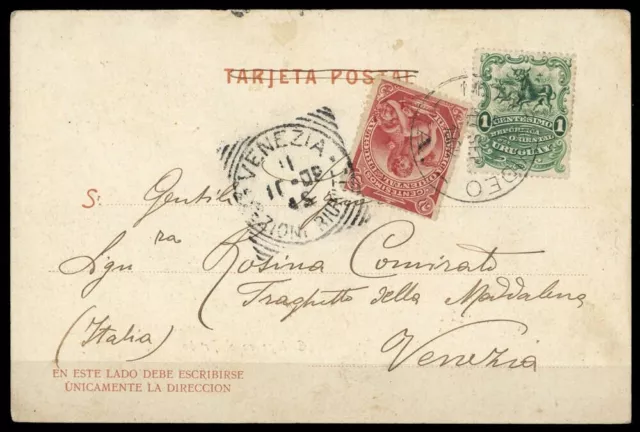 TARJETA POSTAL
1 CENTESIMO 1
REPÚBLICA
ORIENTAL
URUGUAY
VENEZIA
S. Gentile
Sign ra Rosina Comirato
Traghetto della Maddalena
(Italia)
Venezia
EN ESTE LADO DEBE ESCRIBIRSE
ÚNICAMENTE LA DIRECCION